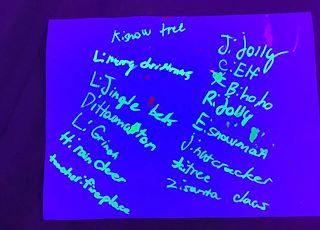 K: snow tree
L: merry christmas
L: Jingle bells
D: Hamilton
L: Grinch
H: rain deer
teacher: fireplace
J: Jolly
C: Elf
B: hoho
R: Jolly
E: snowman
J: nutcracker
tree
Z: santa claus